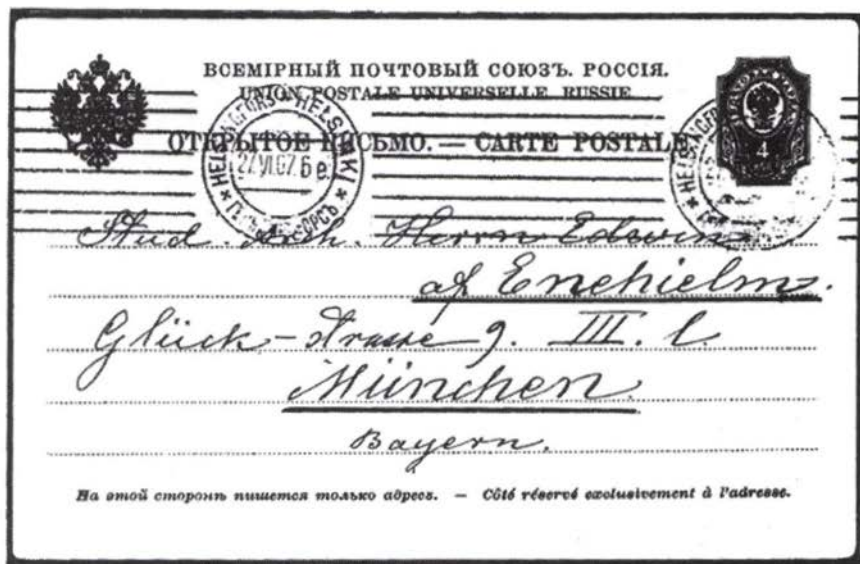 ВСЕМІРНЫЙ ПОЧТОВЫЙ СОЮЗЪ. РОССІЯ.
UNION POSTALE UNIVERSELLE. RUSSIE
ОТКРЫТОЕ ПИСЬМО. — CARTE POSTALE
HELSINGFORS * HELSINKI *
27.VI.07. 6 e.
HELSINGFORS
4
Stud. Arch. Herrn Edwin
af Enehielm.
Glück-strasse 9. III. l.
München.
Bayern.
На этой сторонѣ пишется только адресъ. — Côté réservé exclusivement à l'adresse.